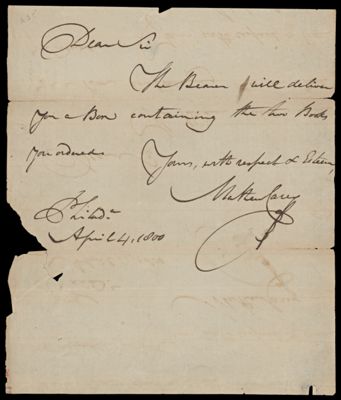 Dear Sir
The Bearer will deliver
you a Box containing the two Books
you ordered
Yours, with respect & Esteem,
Mathew Carey
Philada.
April 4, 1800